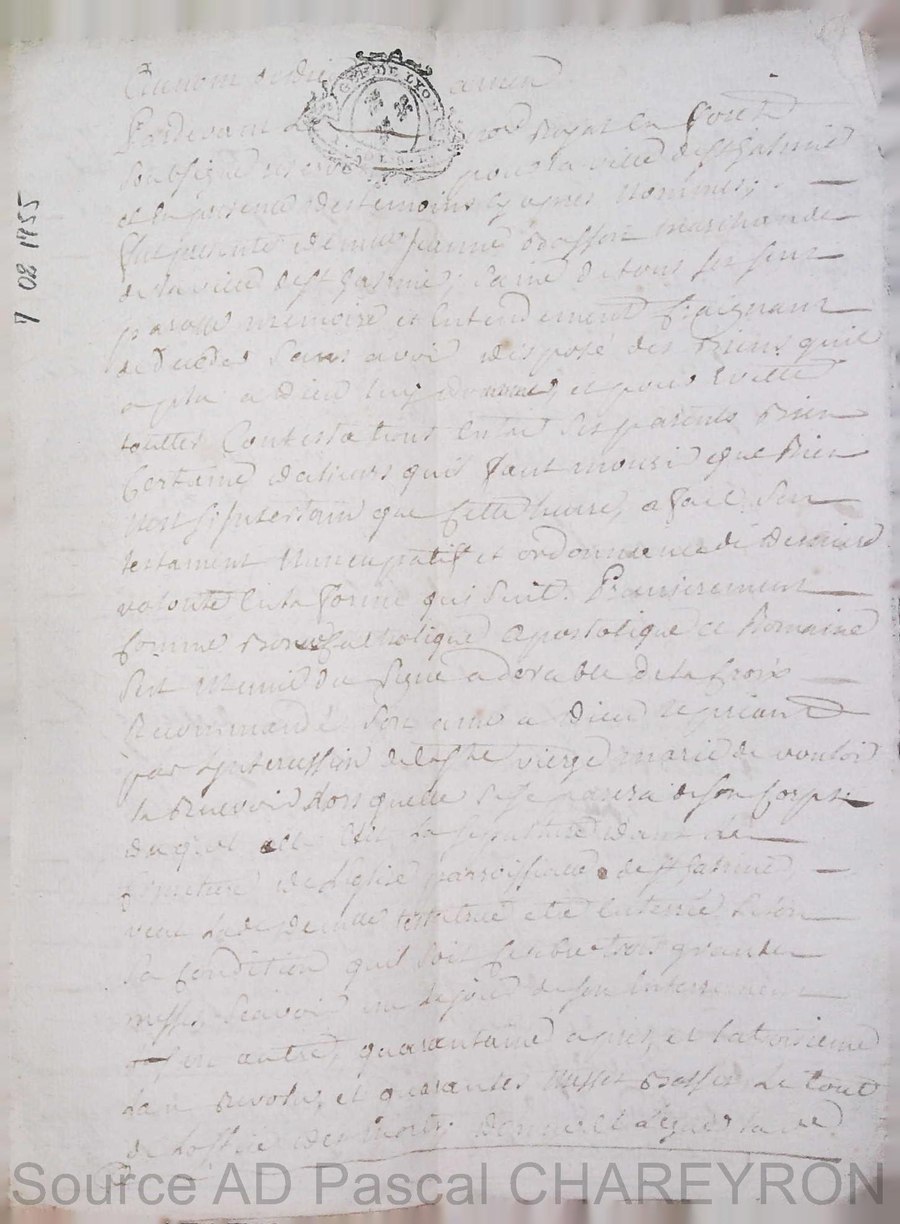 Au nom de dieu amen
Pardevant le no.re Royal en forest
soubsigné reservé pour la ville de st Galmier
et en presence des temoins cy apres nommés,
fut presente demlle Jeanne marchande
de la ville de st Galmier, saine de tous ses sens
parolle memoire et entendement craignant
de deceder sans avoir disposé des Biens quil
a plu a dieu luy donner, et pour eviter
touttes Contestations entre ses parents, Bien
Certaine dalieurs quil faut mourir que Rien
nest sy Incertain que cette heure, a fait son
testament nuncupatif et ordonnance de derniere
volonté en la forme qui suit. Premierement
comme Bonne Catholique Apostolique et Romaine
sest munie du signe adorable de la Croix
Recommandé son ame a Dieu le priant
par Lintercession de la ste vierge marie de vouloir
la Recevoir Lors quelle se separera de son Corps
duquel elle Elit La sepulture dans le
Cimetiere de Leglise parroissialle de st Galmier,
veut ladte demlle testatrice etre enterrée
La Condition quil soit trois grandes
messes scavoir une le jour de son Enterrement
une autre quarantaine apres, et la troisieme
Lan Revolu, et quarantes Messes Basses, Le tout
de Loffice des morts, donne et Legue
7 08 1755
GEN. DE LYON
Source AD Pascal CHAREYRON